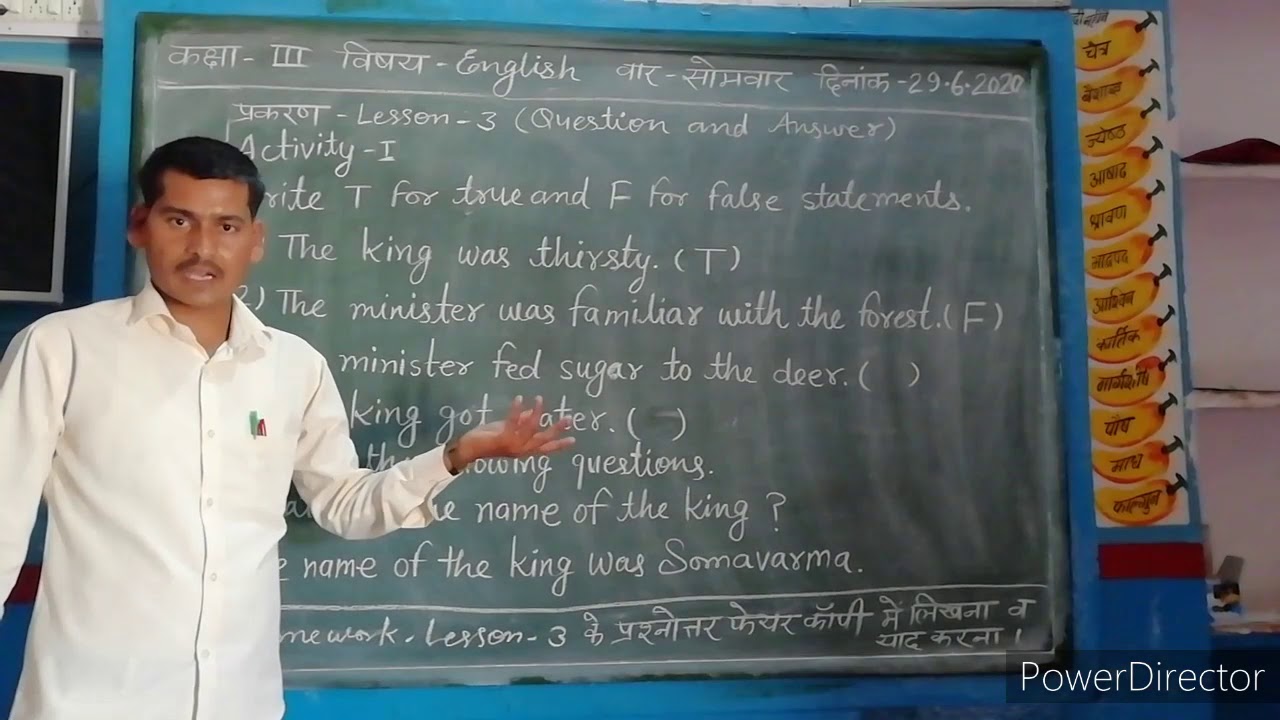 कक्षा - III विषय - English वार - सोमवार दिनांक - 29.6.2020
प्रकरण - Lesson - 3 (Question and Answer)
Activity - I
rite T for true and F for false statements.
The king was thirsty. (T)
2) The minister was familiar with the forest. (F)
minister fed sugar to the deer. ( )
king got water. ( )
the following questions.
name of the king ?
name of the king was Somavarma.
mework - Lesson - 3 के प्रश्नोत्तर फेयर कॉपी में लिखना व
याद करना ।
चैत्र
बैशाख
ज्येष्ठ
आषाढ
श्रावण
भाद्रपद
आश्विन
कार्तिक
मार्गशीर्ष
पौष
माघ
फाल्गुन
PowerDirector